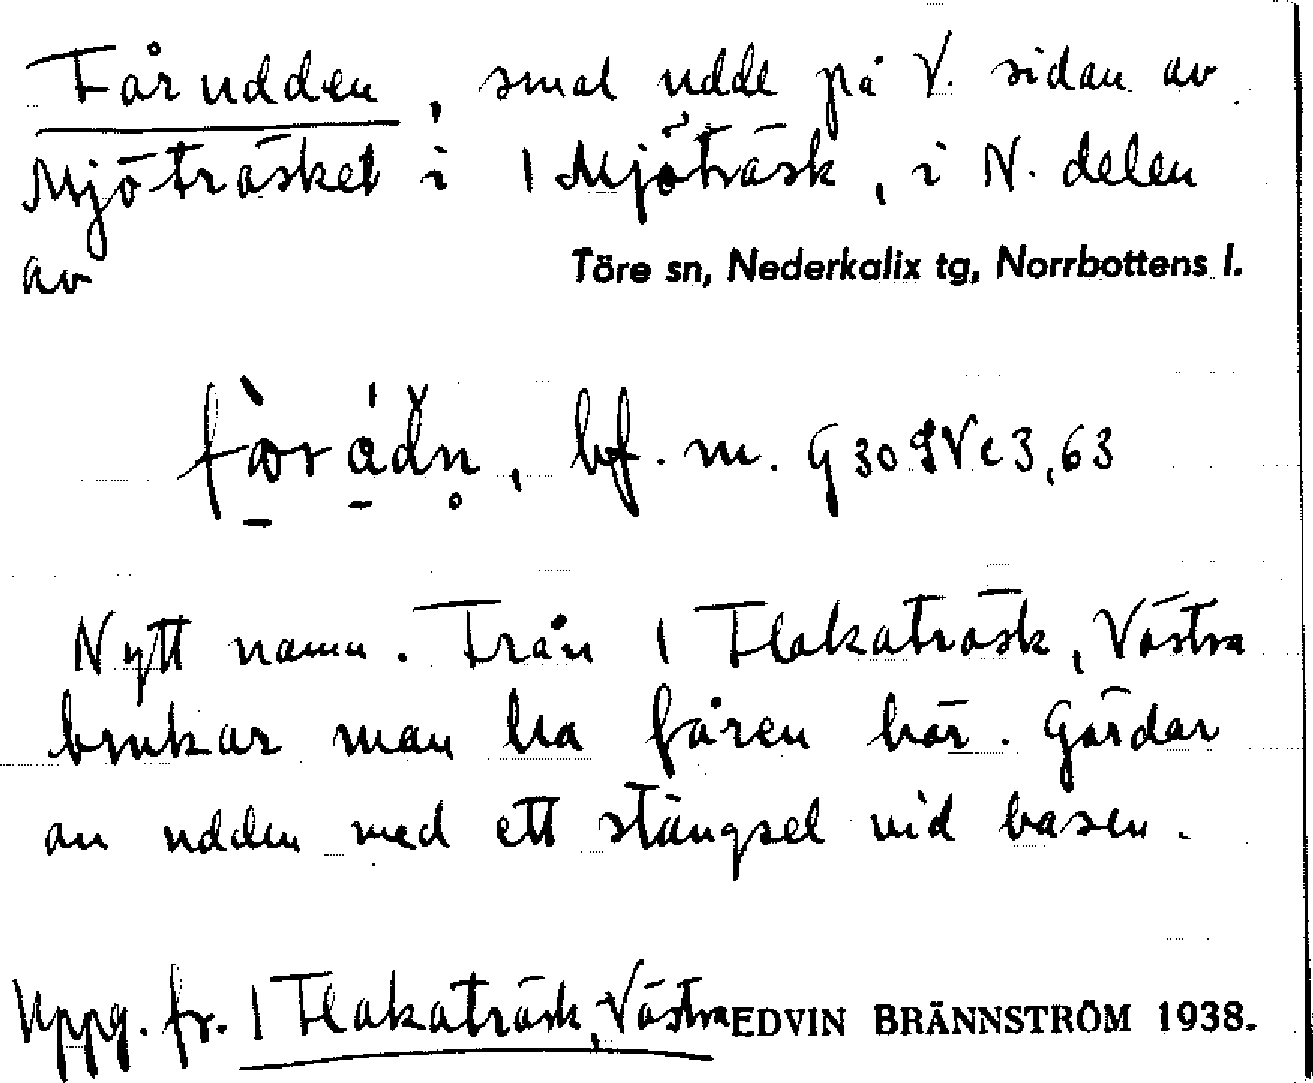 Fårudden, smal udde på V. sidan av
Mjöträsket i 1 Mjöträsk, i N. delen
av
Töre sn, Nederkalix tg, Norrbottens l.
bf. m. G 30 SV c 3,63
Nytt namn. Från 1 Flakaträsk, Västra
brukar man ha fåren här. Gärdar
an udden med ett stängsel vid basen.
Uppg. fr. 1 Flakaträsk, Västra EDVIN BRÄNNSTRÖM 1938.